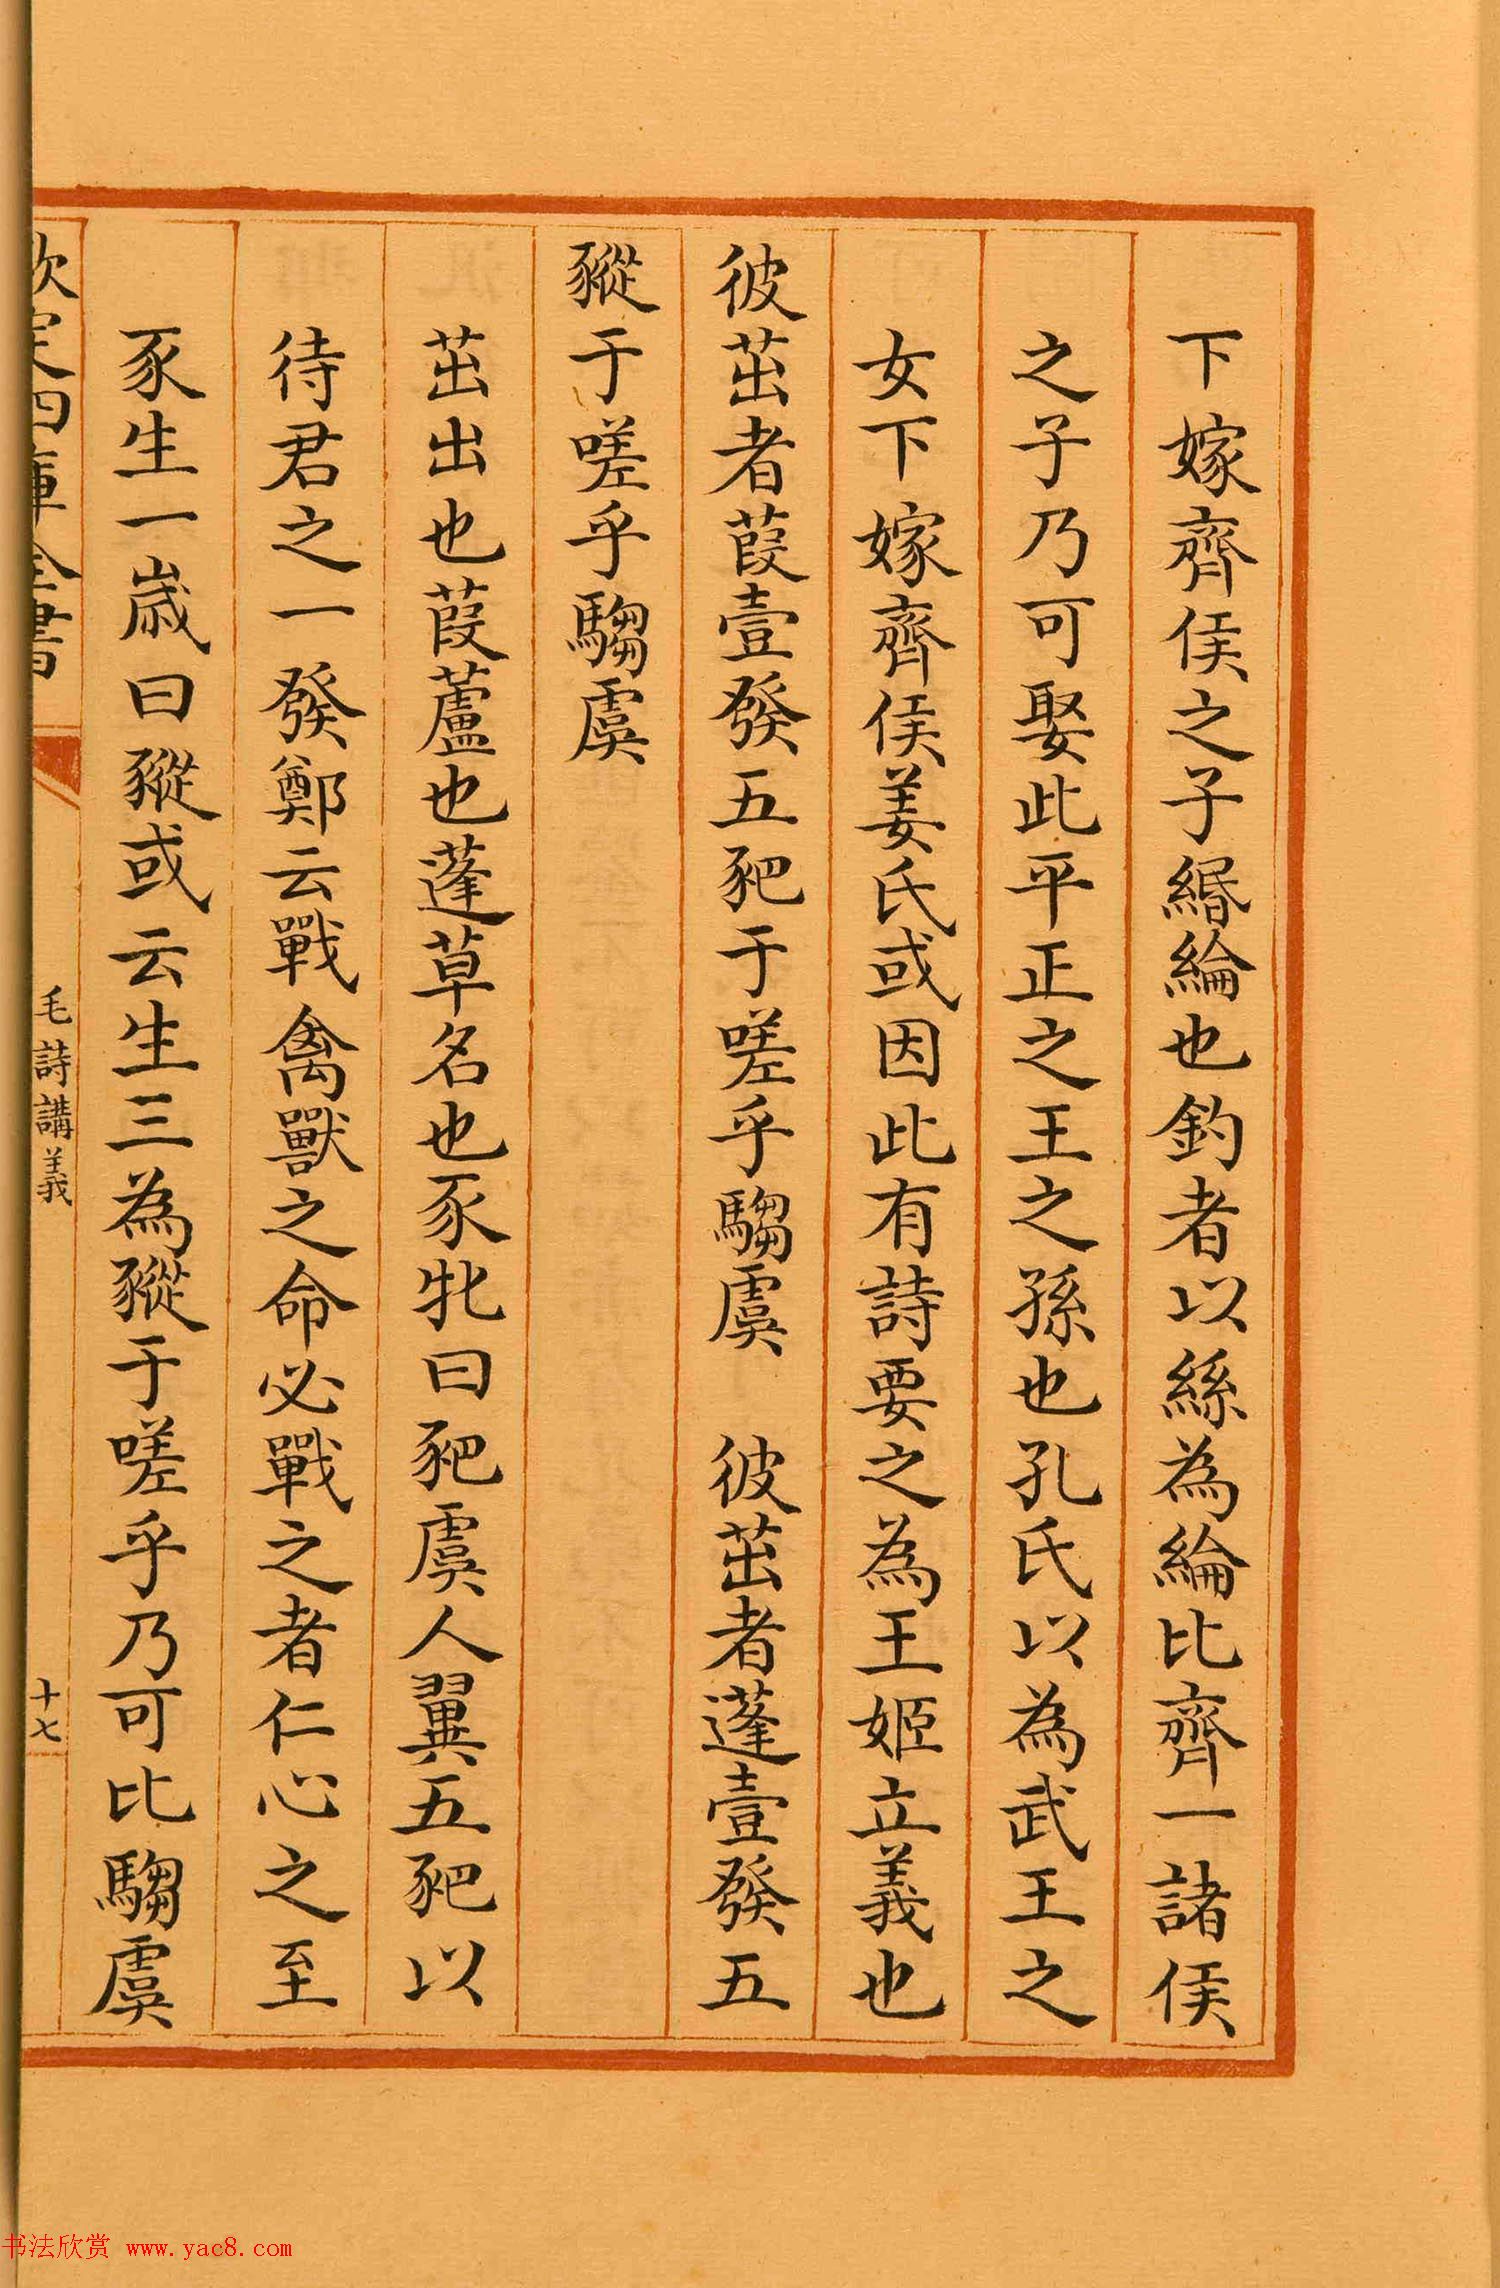 下嫁齊侯之子緡綸也釣者以絲為綸比齊一諸侯
之子乃可娶此平正之王之孫也孔氏以為武王之
女下嫁齊侯姜氏或因此有詩要之為王姬立義也
彼茁者葭壹發五豝于嗟乎騶虞　彼茁者蓬壹發五
豵于嗟乎騶虞
茁出也葭蘆也蓬草名也豕牝曰豝虞人翼五豝以
待君之一發鄭云戰禽獸之命必戰之者仁心之至
豕生一歲曰豵或云生三為豵于嗟乎乃可比騶虞
欽定四庫全書
毛詩講義
十七
书法欣赏 www.yac8.com